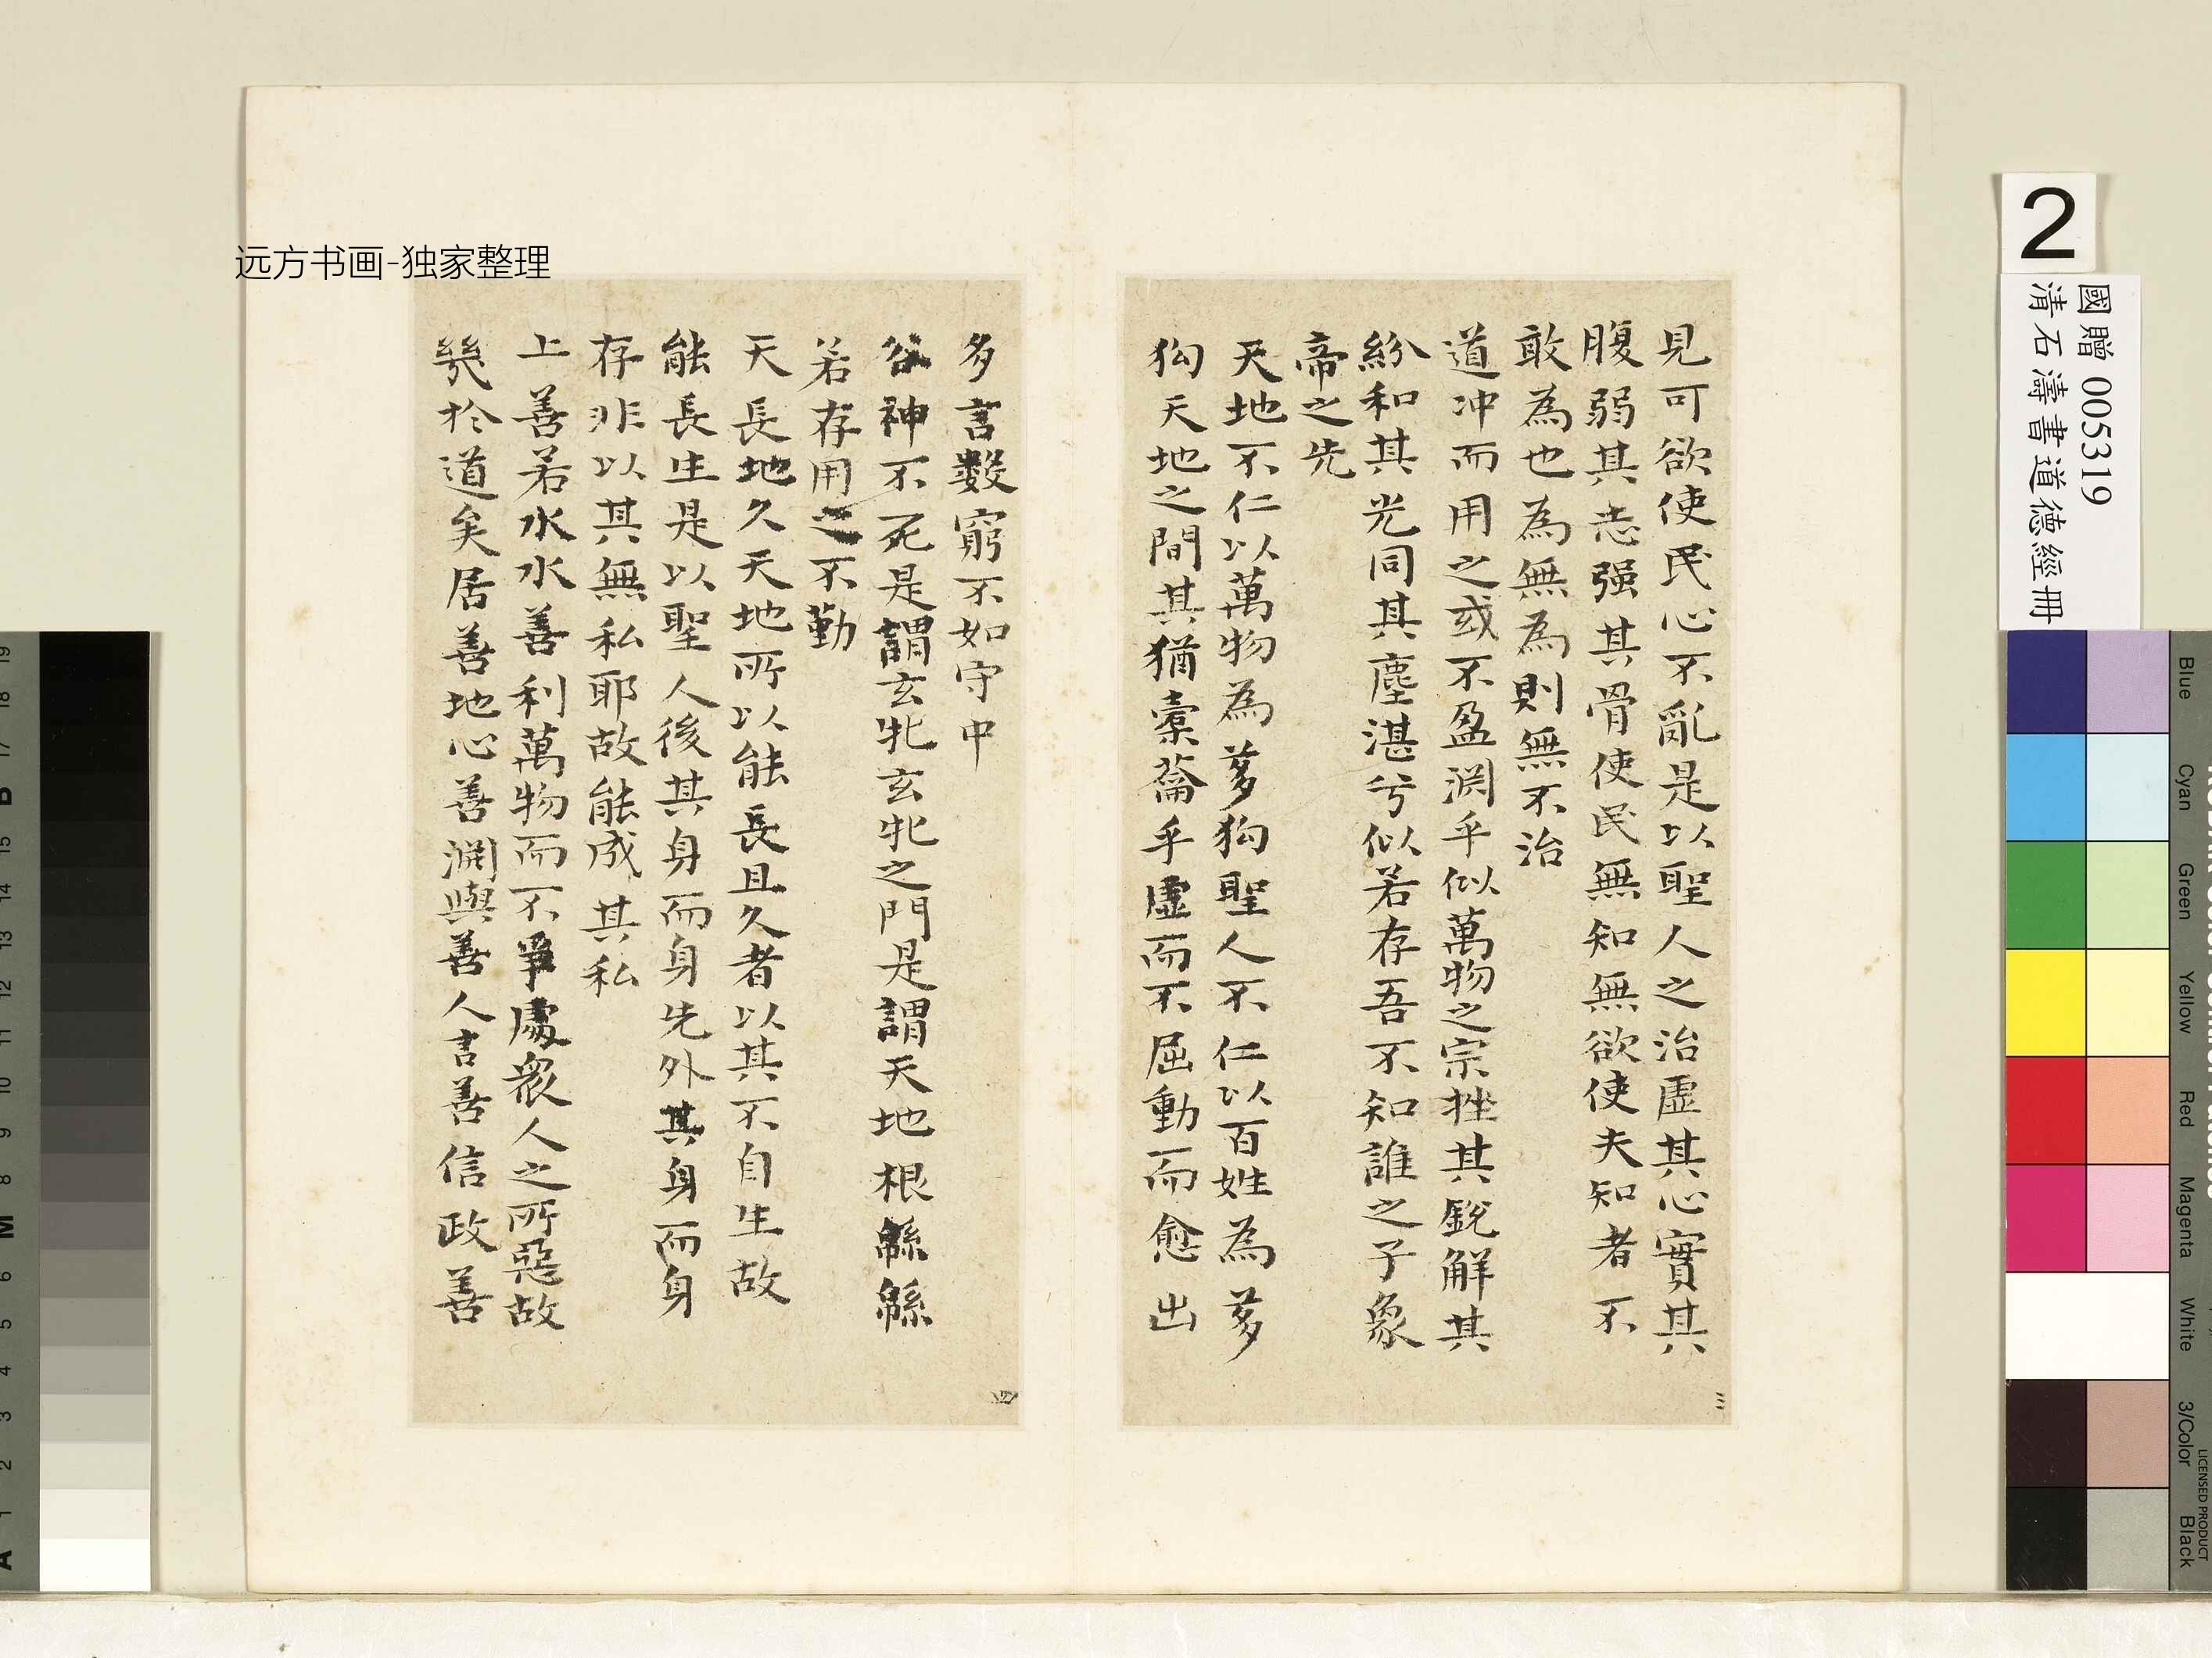 見可欲使民心不亂是以聖人之治虛其心實其
腹弱其志强其骨使民無知無欲使夫知者不
敢為也為無為則無不治
道冲而用之或不盈淵乎似萬物之宗挫其銳解其
紛和其光同其塵湛兮似若存吾不知誰之子象
帝之先
天地不仁以萬物為芻狗聖人不仁以百姓為芻
狗天地之間其猶橐籥乎虛而不屈動而愈出
三
多言數窮不如守中
谷神不死是謂玄牝玄牝之門是謂天地根緜緜
若存用之不勤
天長地久天地所以能長且久者以其不自生故
能長生是以聖人後其身而身先外其身而身
存非以其無私耶故能成其私
上善若水水善利萬物而不爭處衆人之所惡故
幾於道矣居善地心善淵與善人言善信政善
四
远方书画-独家整理
2
國贈 005319
清石濤書道德經冊
Blue
Cyan
Green
Yellow
Red
Magenta
White
3/Color
Black
LICENSED PRODUCT
A 1 2 3 4 5 6 M 8 9 10 11 12 13 14 15 B 17 18 19